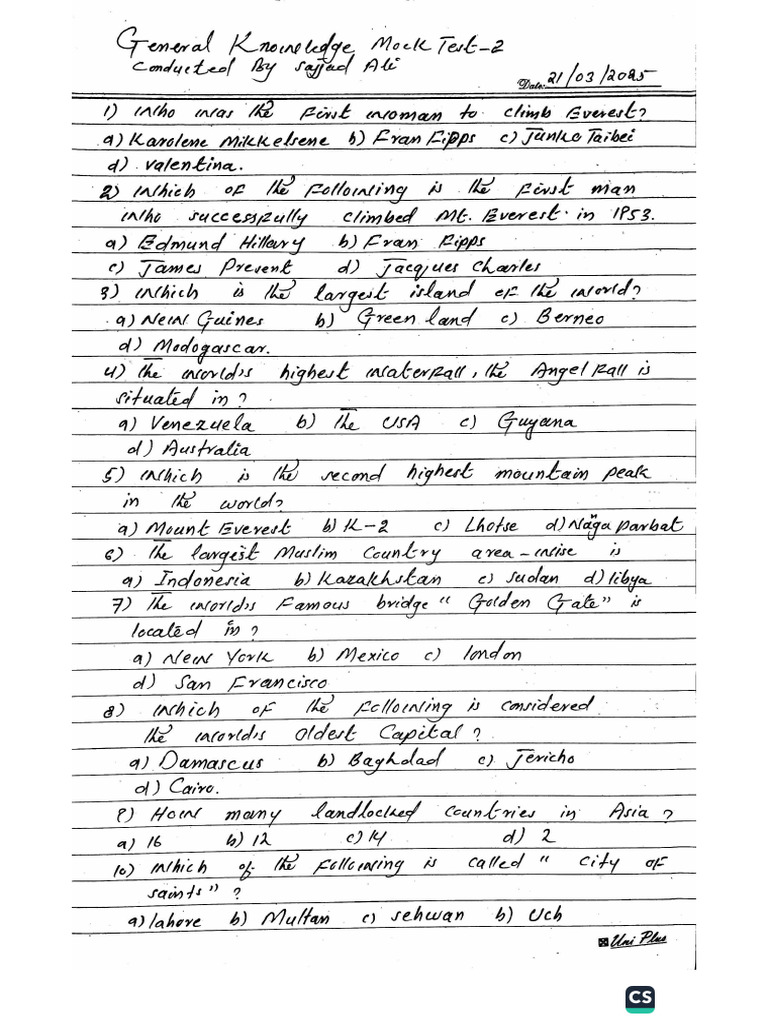 General Knowledge Mock Test-2
Conducted By Sajjad Ali
Date: 21/03/2025
1) Who was the First woman to climb Everest?
a) Karolene Mikkelsene b) Fran Fipps c) Junko Taibei
d) valentina.
2) Which of the Following is the First man
who successfully climbed Mt. Everest in 1953.
a) Edmund Hillary b) Fran Fipps
c) James Present d) Jacques Charles
3) Which is the largest island of the world?
a) New Guines b) Green land c) Berneo
d) Modogascar.
4) The world's highest waterfall, the Angel Fall is
situated in?
a) Venezuela b) The USA c) Guyana
d) Australia
5) Which is the second highest mountain peak
in the world?
a) Mount Everest b) K-2 c) Lhotse d) Nanga parbat
6) The largest Muslim Country area-wise is
a) Indonesia b) Kazakhstan c) sudan d) libya
7) The world's Famous bridge "Golden Gate" is
located in?
a) New York b) Mexico c) london
d) San Francisco
8) Which of the Following is considered
the world's oldest Capital?
a) Damascus b) Baghdad c) Jericho
d) Cairo.
9) How many landlocked countries in Asia?
a) 16 b) 12 c) 14 d) 2
10) Which of the Following is called "City of
saints"?
a) lahore b) Multan c) sehwan b) Uch
Uni Plus
CS